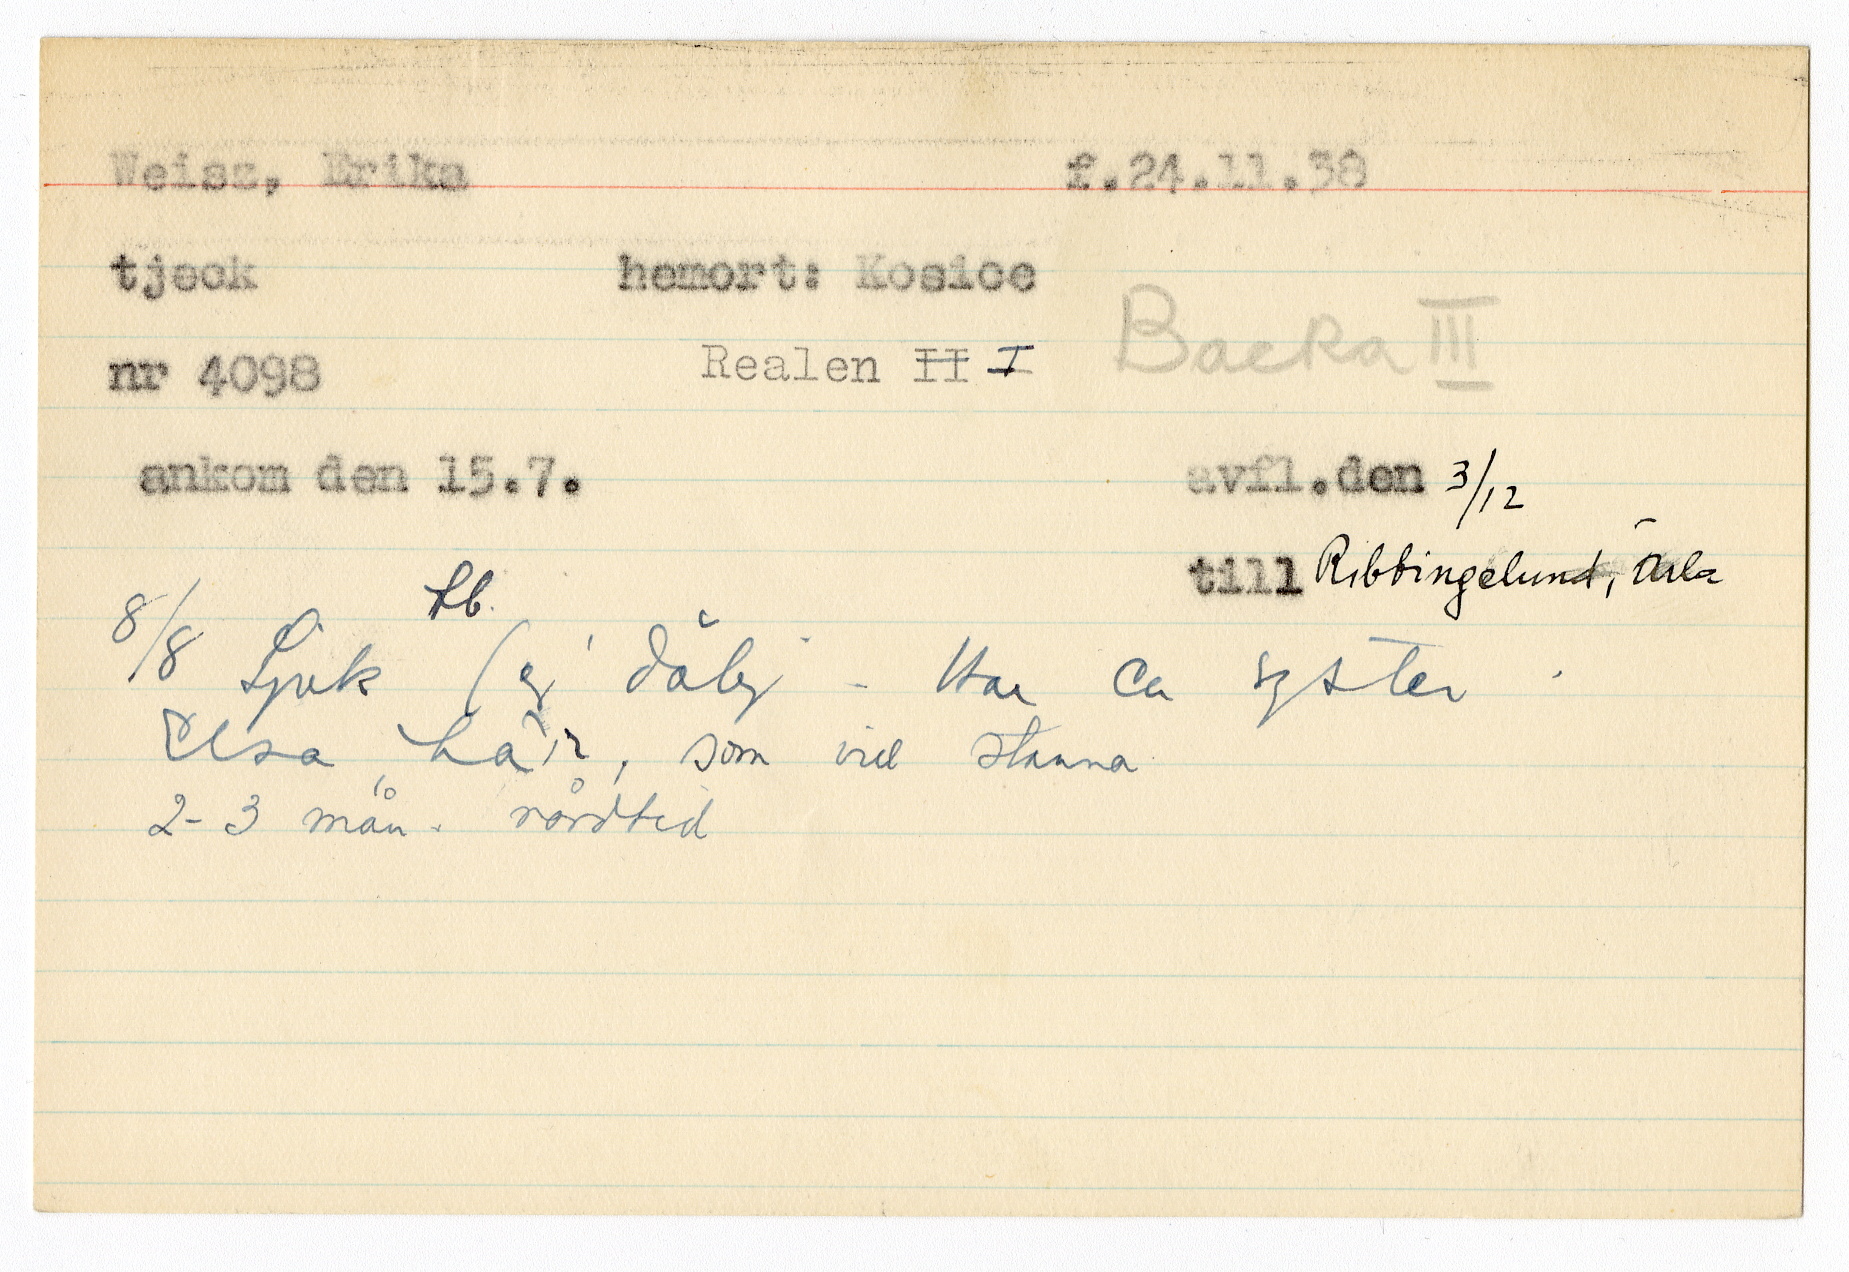 Weisz, Erika f.24.11.38
tjeck hemort: Kosice
nr 4098 Realen II I Backa III
ankom den 15.7. avfl.den 3/12
till Ribbingelund, Ärla
8/8 Sjuk (ej dålig - Har en syster
Elsa här, som vill stanna
2-3 mån. vårdtid